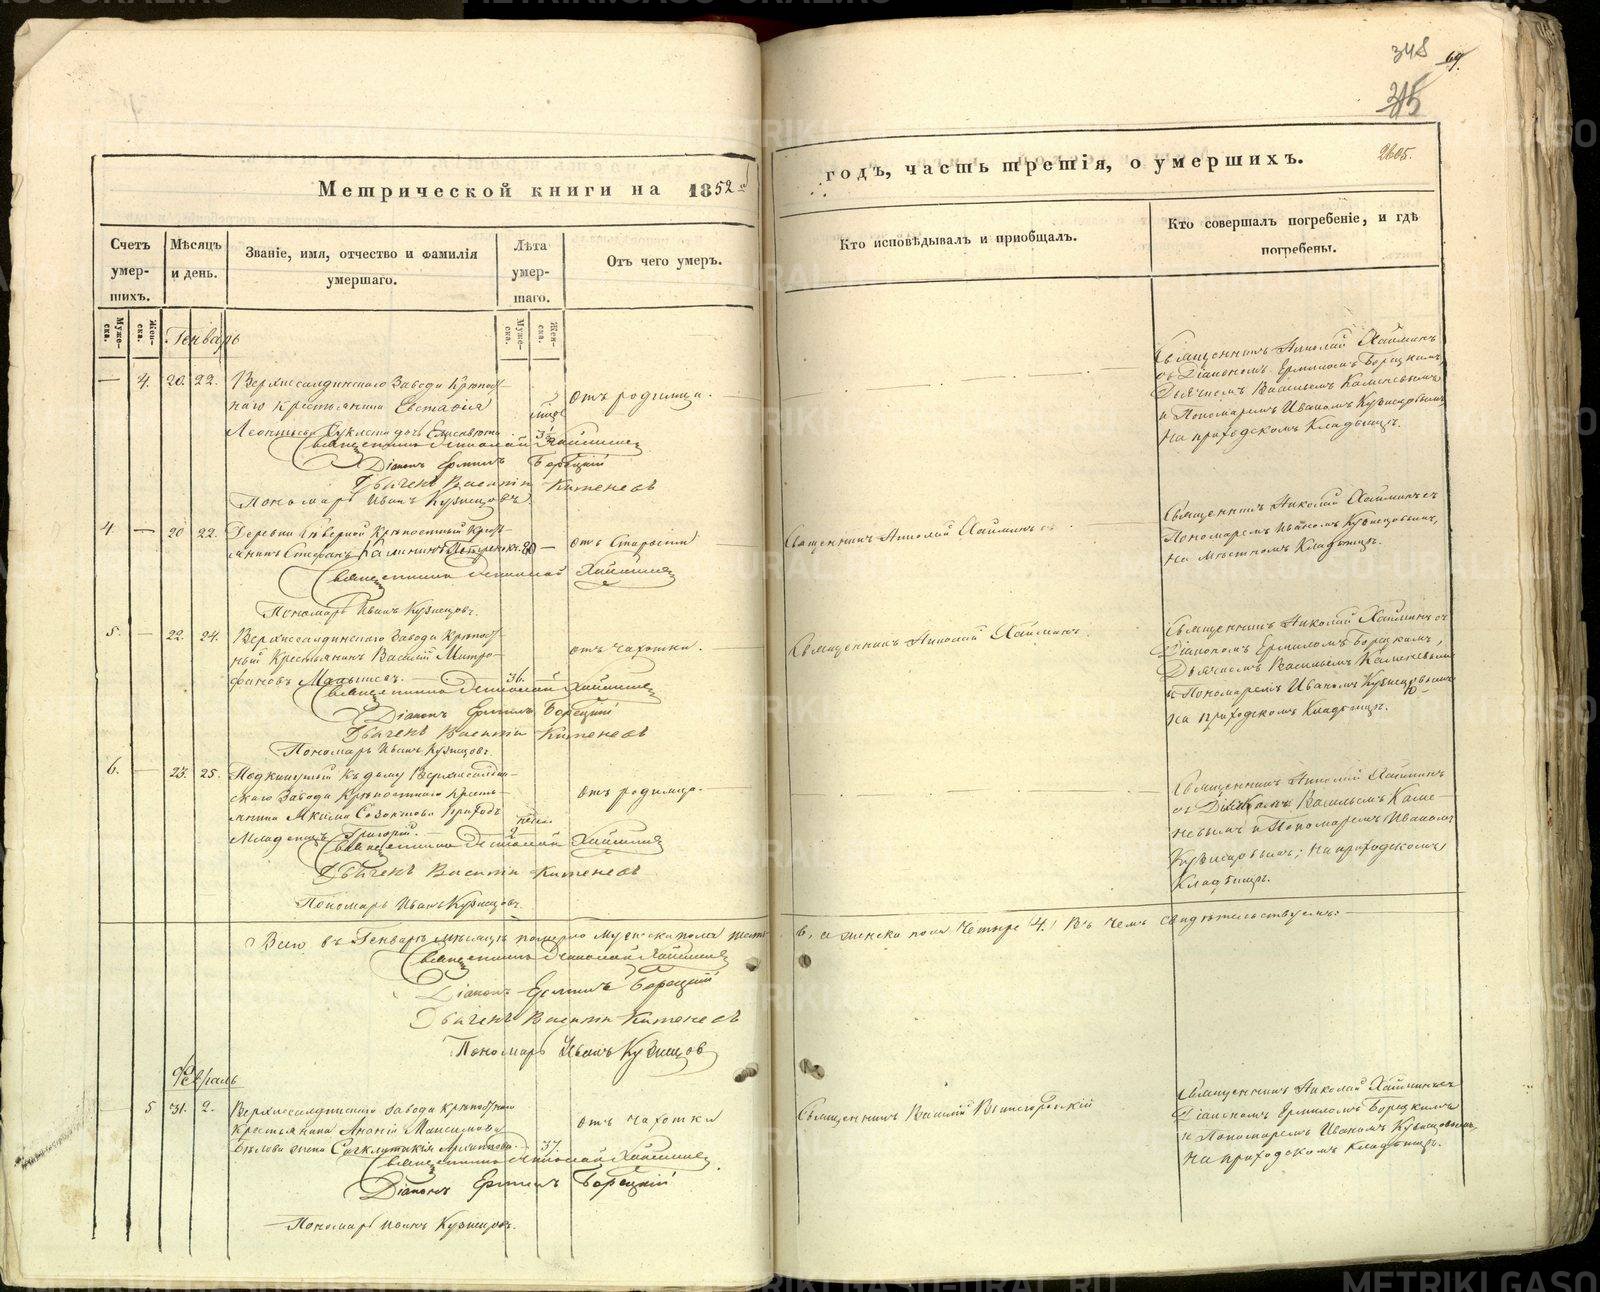 348
69.
315
2605.
Метрической книги на 1852й
годъ, часть третія, о умершихъ.
Счетъ умер-шихъ.
Мѣсяцъ и день.
Званіе, имя, отчество и фамилія умершаго.
Лѣта умер-шаго.
Отъ чего умеръ.
Кто исповѣдывалъ и пріобщалъ.
Кто совершалъ погребеніе, и гдѣ погребены.
Муже-ска.
Жен-ска.
Муже-ска.
Жен-ска.
Генварь
— 4. 20. 22. Верхнесалдинскаго Завода Крѣпост-
наго крестьянина Евставія
Леонтьева дочь Елисавета
отъ родимца.
Священникъ Николай Хайминъ
Діаконъ Ермилъ Борецкій
Дьячекъ Василій
Пономарь Иванъ Кузнецовъ
Священникъ Николай Хайминъ
съ Діакономъ Ермиломъ Борецкимъ,
Дьячкомъ Васильемъ
и Пономаремъ Иваномъ Кузнецовымъ
на приходскомъ Кладбищѣ.
4. — 20 22. Деревни Северной Крѣпостный Крес-
янинъ Стефанъ Калининъ 80 —
отъ Старости
Священникъ Николай Хайминъ
Пономарь Иванъ Кузнецовъ.
Священникъ Николай Хайминъ
Священникъ Николай Хайминъ съ
Пономаремъ Иваномъ Кузнецовымъ,
на мѣстномъ Кладбищѣ.
5. — 22. 24. Верхнесалдинскаго Завода Крѣпост-
ный Крестьянинъ Василій Митро-
фановъ 36.
отъ чахотки.
Священникъ Николай Хайминъ
Діаконъ Ермилъ Борецкій
Дьячекъ Василій
Пономарь Иванъ Кузнецовъ.
Священникъ Николай Хайминъ.
Священникъ Николай Хайминъ съ
Діакономъ Ермиломъ Борецкимъ,
Дьячкомъ Васильемъ
и Пономаремъ Иваномъ Кузнецовымъ
на приходскомъ Кладбищѣ.
6. — 23. 25. Подкинутый къ дому Верхнесалдин-
скаго Завода Крѣпостнаго Кресть-
янина Акима
Младенецъ Григорій. 2
отъ родимца.
Священникъ Николай Хайминъ
Дьячекъ Василій
Пономарь Иванъ Кузнецовъ.
Священникъ Николай Хайминъ
съ Васильемъ
и Пономаремъ Иваномъ
Кузнецовымъ; на приходскомъ
Кладбищѣ.
Всего въ Генварѣ мѣсяцѣ померло Мужеска пола шесть
6, а женска пола Четыре (4.) Въ чемъ свидѣтельствуемъ.
Священникъ Николай Хайминъ
Діаконъ Ермилъ Борецкій
Дьячекъ Василій
Пономарь Иванъ Кузнецов
Февраль
5 31. 2. Верхнесалдинскаго Завода крѣпостнаго
Крестьянина Максимова
жена 37.
отъ чахотки
Священникъ Николай Хайминъ
Діаконъ Ермилъ Борецкій
Пономарь Иванъ Кузнецовъ.
Священникъ Василій
Священникъ Николай Хайминъ съ
Діакономъ Ермиломъ Борецкимъ
и Пономаремъ Иваномъ Кузнецовымъ,
на приходскомъ кладбищѣ.
METRIKI.GASO-URAL.RU